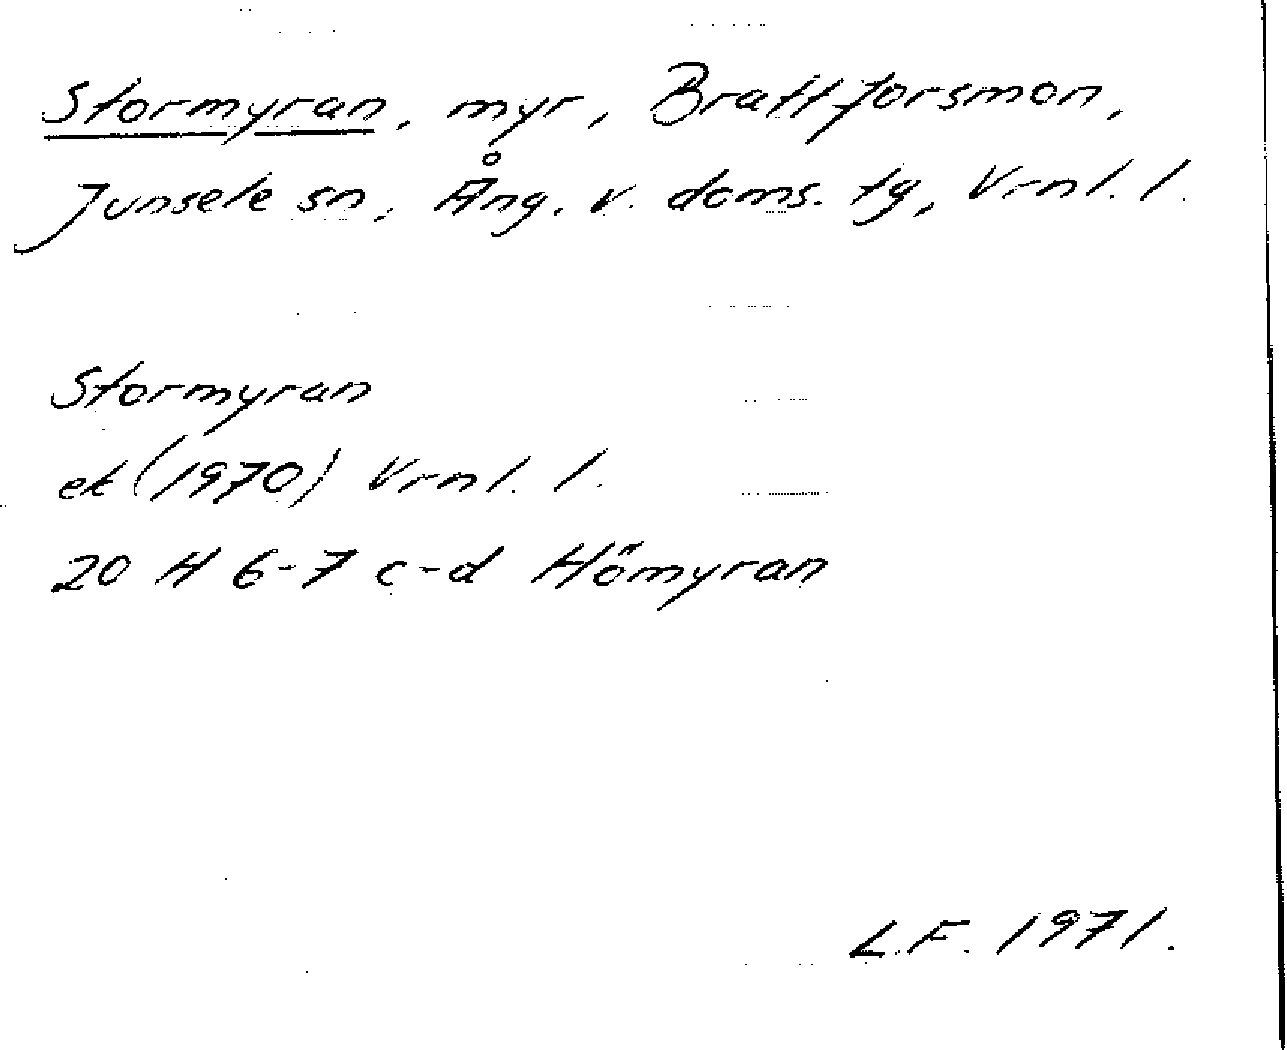 Stormyran, myr, Brattforsmon,
Junsele sn, Ång. v. doms. tg, Vrnl. l.
Stormyran
ek (1970) Vrnl. l.
20 H 6-7 c-d Hömyran
L.F. 1971.